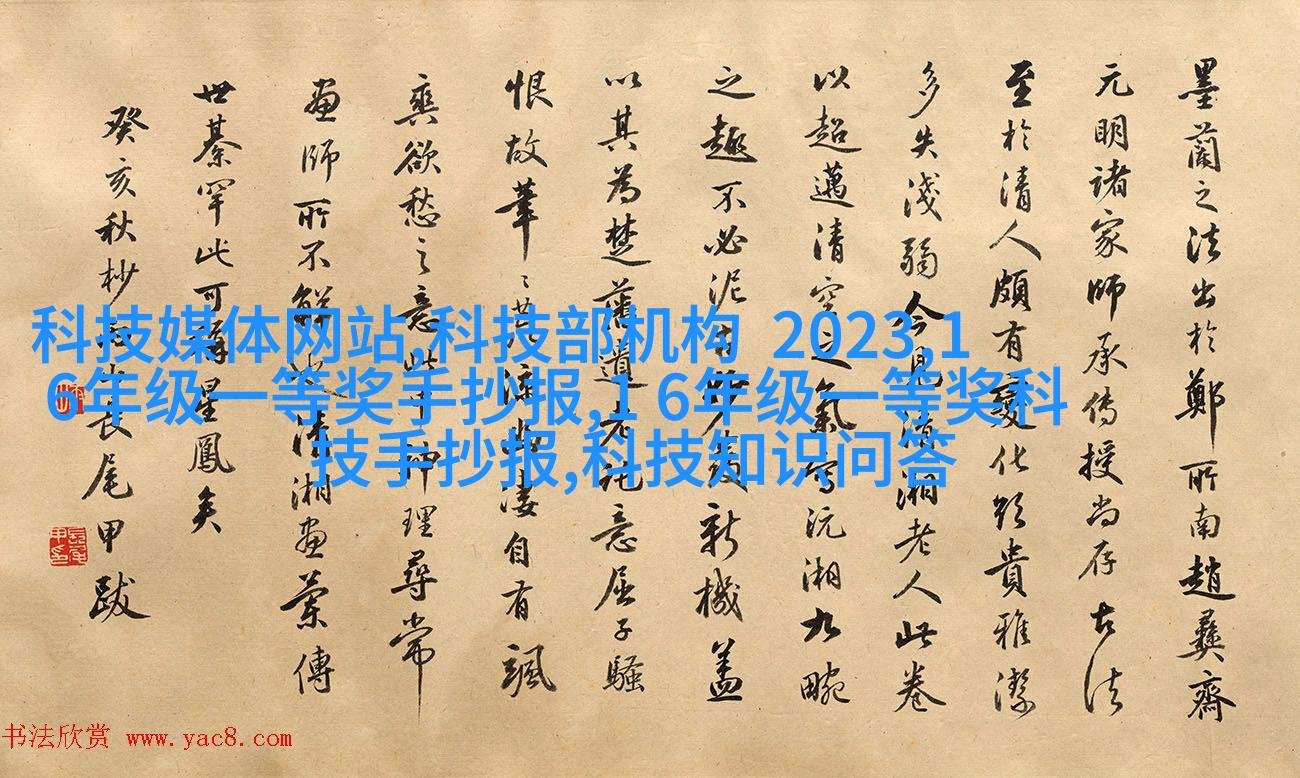 墨蘭之法出於鄭所南趙彝齋
元明諸家師承傳授尚存古法
至於清人頗有變化 貴雅潔
多失淺弱今見清湘老人此卷
以超邁清空之氣寫沅湘九畹
之趣不必泥古 發新機蓋
以其為楚藩遺老託意屈子騷
恨故筆〻 涼 淒自有颯
爽欲愁之意此中神理尋常
畫師所不解 清湘畫蘭傳
世綦罕此可稱星鳳矣
癸亥秋杪 長尾甲跋
科技媒体网站,科技部机构 2023,1
6年级一等奖手抄报,1 6年级一等奖科
技手抄报,科技知识问答
书法欣赏 www.yac8.com